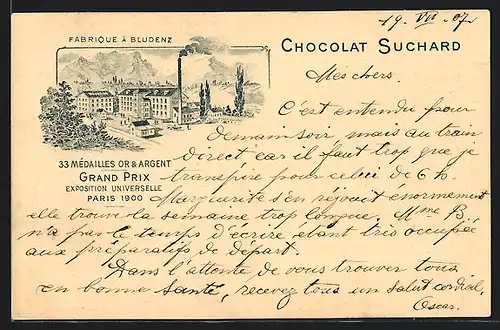 FABRIQUE À BLUDENZ
19. VII. 07.
CHOCOLAT SUCHARD
33 MÉDAILLES OR & ARGENT
GRAND PRIX
EXPOSITION UNIVERSELLE
PARIS 1900
Mes chers.
C'est entendu pour
demain soir mais au train
direct car il faut trop que je
transpire pour celui de 6 h.
Marguerite s'en réjouit énormement
elle trouve la semaine trop longue. Mme B.
n'a pas le temps d'écrire étant très occupée
aux préparatifs de départ.
Dans l'attente de vous trouver tous
en bonne santé, recevez tous un salut cordial.
Oscar.